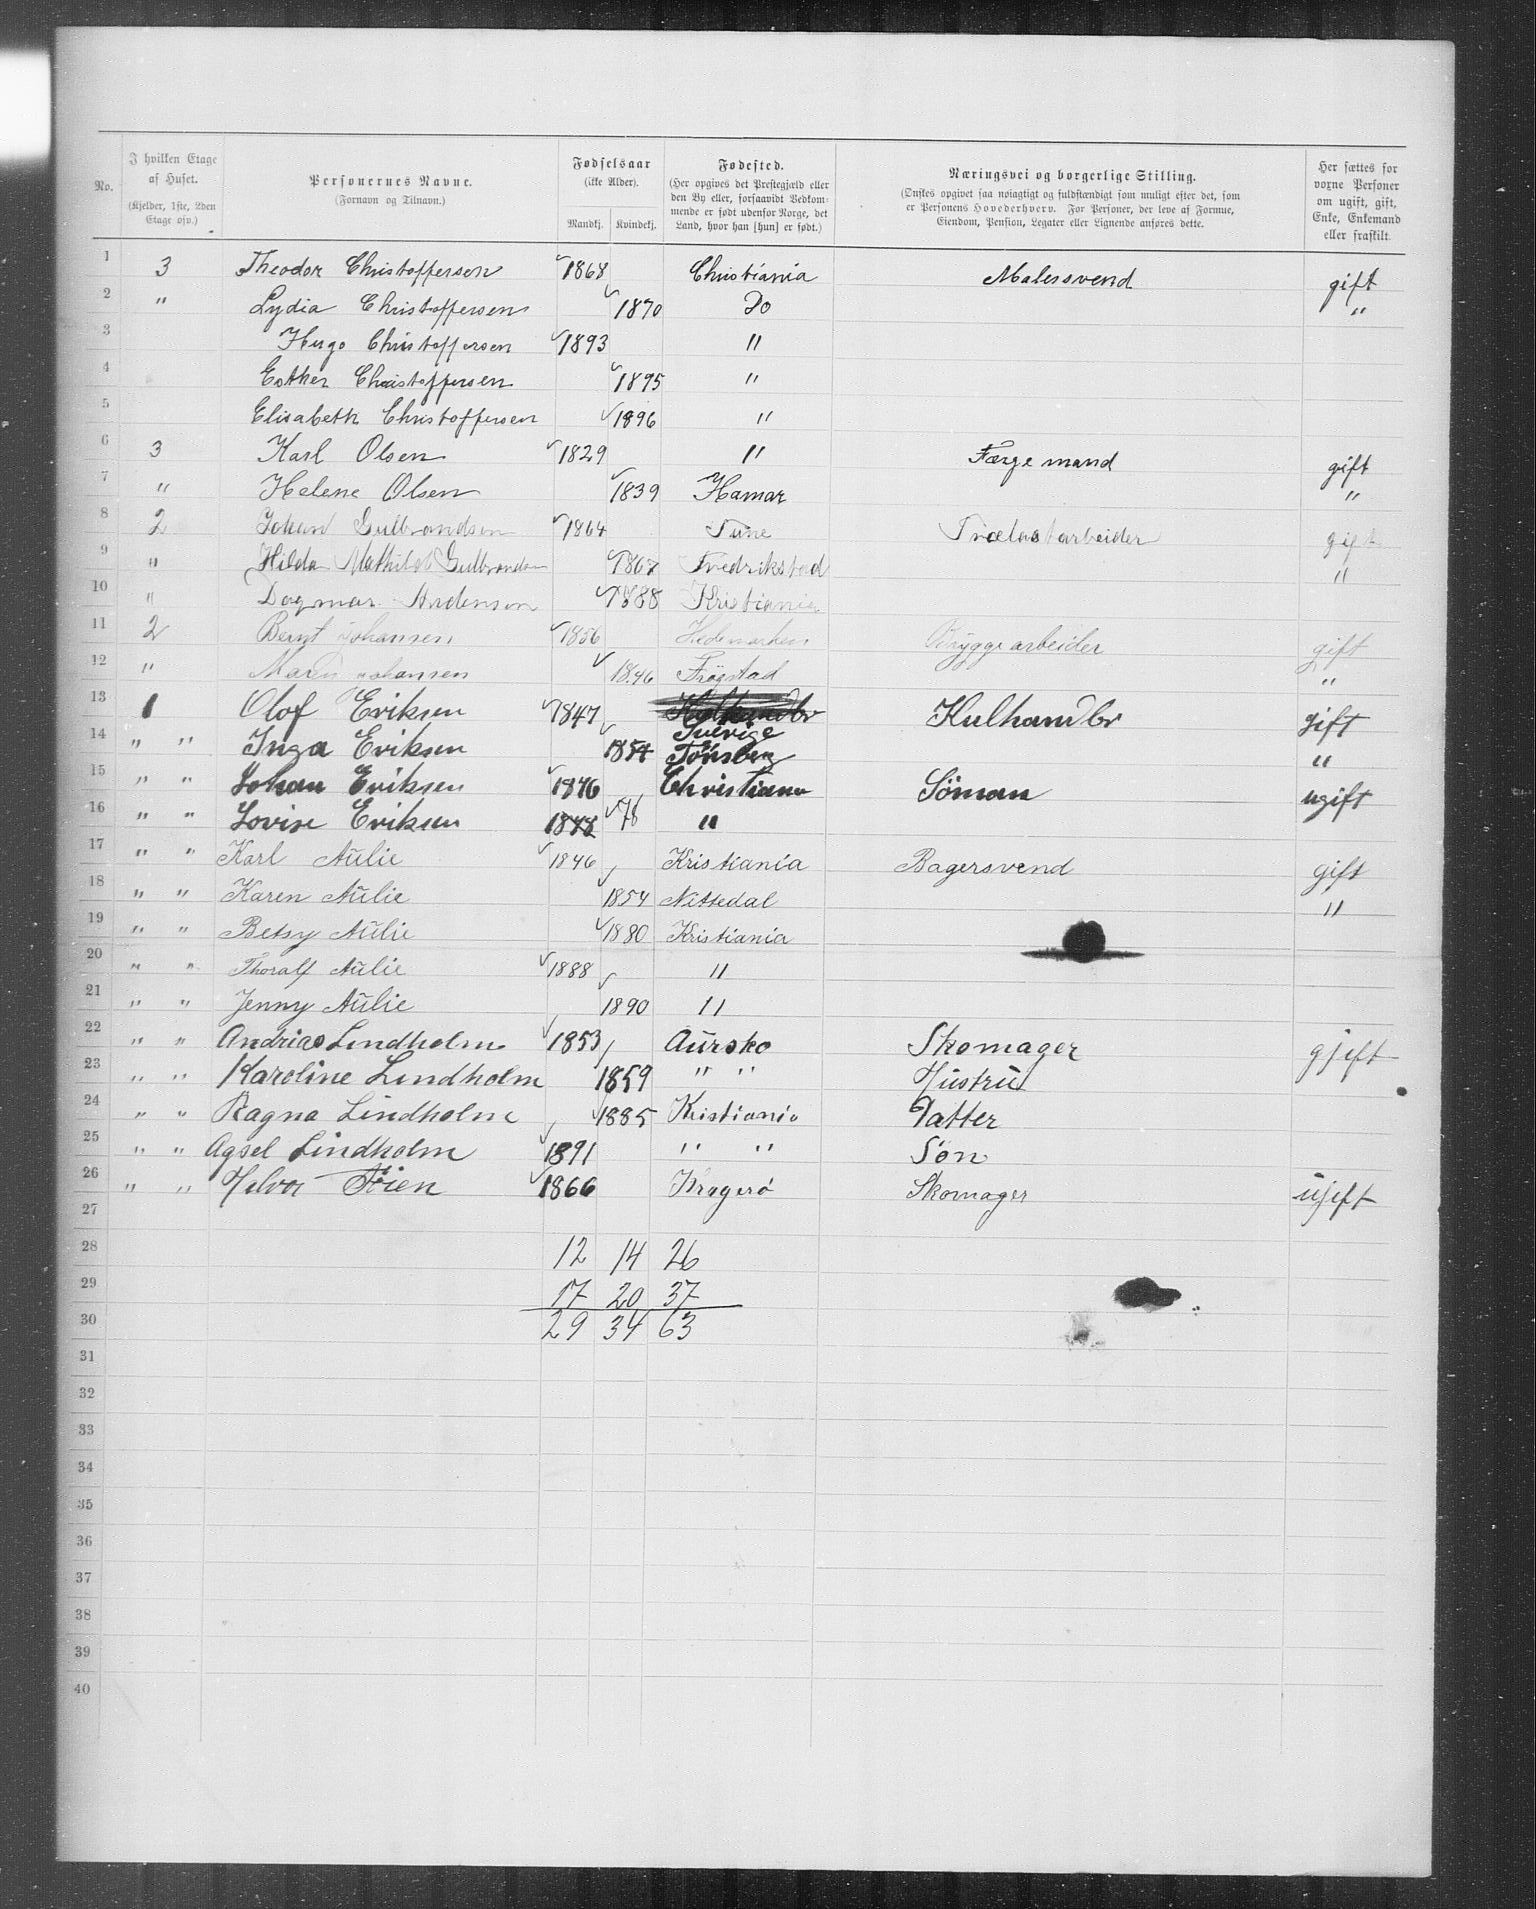 No. I hvilken Etage af Huset. (Kjelder, 1ste, 2den Etage osv.) Personernes Navne. (Fornavn og Tilnavn.) Fødselsaar (ikke Alder). Mandkj. Kvindekj. Fødested. (Her opgives det Prestegjæld eller den By eller, forsaavidt Vedkommende er født udenfor Norge, det Land, hvor han [hun] er født.) Næringsvei og borgerlige Stilling. (Ønskes opgivet saa nøiagtigt og fuldstændigt som muligt efter det, som er Personens Hovederhverv. For Personer, der leve af Formue, Eiendom, Pension, Legater eller Lignende anføres dette. Her sættes for vorne Personer om ugift, gift, Enke, Enkemand eller fraskilt.
1 3 Theodor Christoffersen 1868 Christiania Malersvend gift
2 " Lydia Christoffersen 1870 Do "
3 Hugo Christoffersen 1893 "
4 Esther Christoffersen 1895 "
5 Elisabeth Christoffersen 1896 "
6 3 Karl Olsen 1829 " Færgemand gift
7 " Helene Olsen 1839 Hamar "
8 2 Johan Gulbrandsen 1864 Tune Trælastarbeider gift
9 " Hilda Mathilde Gulbrandsen 1867 Fredrikstad "
10 " Dagmar Andersen 1888 Kristiania
11 2 Bernt Johansen 1856 Hedemarken Bryggearbeider gift
12 " Maren Johansen 1846 Frøgstad "
13 1 Olof Eriksen 1847 Kulhandlr gift
Sverige
14 " " Inga Eriksen 1854 Tönsberg "
15 " " Johan Eriksen 1876 Christiania Söman ugift
16 " " Lovise Eriksen 1878 78 "
17 " " Karl Aulie 1846 Kristiania Bagersvend gift
18 " " Karen Aulie 1854 Nittedal "
19 " " Betsy Aulie 1880 Kristiania
20 " " Thoralf Aulie 1888 "
21 " " Jenny Aulie 1890 "
22 " " Andrias Lindholm 1853 Aursko Skomager gjeft
23 " " Karoline Lindholm 1859 " " Hustru
24 " " Ragna Lindholm 1885 Kristiania Datter
25 " " Agsel Lindholm 1891 " " Søn
26 " " Helvor Föien 1866 Kragerö Skomager ujeft
27
28 12 14 26
29 17 20 37
30 29 34 63
31
32
33
34
35
36
37
38
39
40